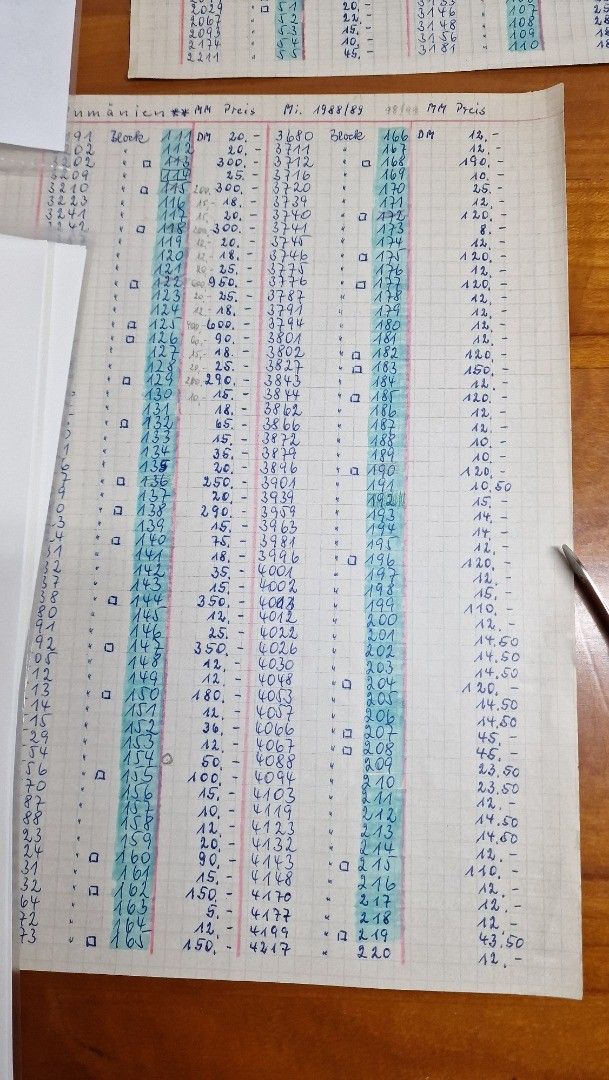 2029 " 51 20.-
2067 " 52 22.- 3146 " 107 25
2093 " 53 15.- 3148 " 108
2174 " 54 10.- 3156 " 109
2211 " 55 45.- 3181 " 110
umänien ** MM Preis Mi. 1988/89 98/99 MM Preis
191 Block 111 DM 20.- 3680 Block 166 DM 12.-
202 " 112 20.- 3711 " 167 12.-
202 " □ 113 300.- 3712 " □ 168 190.-
209 " 114 25.- 3716 " 169 10.-
3210 " □ 115 200.- 300.- 3720 " 170 25.-
3223 " 116 15.- 18.- 3739 " 171 12.-
3241 " 117 15.- 20.- 3740 " □ 172 120.-
" □ 118 200.- 300.- 3741 " 173 8.-
" 119 12.- 20.- 3745 " 174 12.-
" 120 12.- 18.- 3746 " □ 175 120.-
" 121 20.- 25.- 3775 " 176 12.-
" □ 122 600.- 950.- 3776 " □ 177 120.-
" 123 20.- 25.- 3787 " 178 12.-
" 124 12.- 18.- 3791 " 179 12.-
" □ 125 400.- 600.- 3794 " 180 12.-
" □ 126 60.- 90.- 3801 " 181 12.-
" 127 15.- 18.- 3802 " □ 182 120.-
" 128 20.- 25.- 3827 " □ 183 150.-
" □ 129 200.- 290.- 3843 " 184 12.-
" 130 10.- 15.- 3844 " □ 185 120.-
" 131 18.- 3862 " 186 12.-
" □ 132 65.- 3866 " 187 12.-
" 133 15.- 3872 " 188 10.-
" 134 35.- 3879 " 189 10.-
" 135 20.- 3896 " □ 190 120.-
" □ 136 250.- 3901 " 191 10.50
" 137 20.- 3939 " 192 15.-
" □ 138 290.- 3959 " 193 14.-
" 139 15.- 3963 " 194 14.-
" □ 140 75.- 3981 " 195 12.-
31 " 141 18.- 3996 " □ 196 120.-
32 " 142 35.- 4001 " 197 12.-
37 " 143 15.- 4002 " 198 15.-
38 " □ 144 350.- 4013 " 199 110.-
80 " 145 12.- 4012 " 200 12.-
91 " 146 25.- 4022 " 201 14.50
92 " □ 147 350.- 4026 " 202 14.50
05 " 148 12.- 4030 " 203 14.50
12 " 149 12.- 4048 " □ 204 120.-
13 " □ 150 180.- 4053 " 205 14.50
14 " 151 12.- 4057 " 206 14.50
15 " 152 36.- 4066 " □ 207 45.-
29 " 153 12.- 4067 " □ 208 45.-
54 " 154 50.- 4088 " 209 23.50
56 " □ 155 100.- 4094 " 210 23.50
70 " 156 15.- 4103 " 211 12.-
87 " 157 10.- 4119 " 212 14.50
88 " 158 12.- 4123 " 213 14.50
23 " 159 20.- 4132 " 214 12.-
24 " □ 160 90.- 4143 " □ 215 110.-
31 " 161 15.- 4148 " 216 12.-
32 " □ 162 150.- 4170 " 217 12.-
64 " 163 5.- 4177 " 218 12.-
72 " 164 12.- 4199 " □ 219 43.50
73 " □ 165 150.- 4217 " 220 12.-